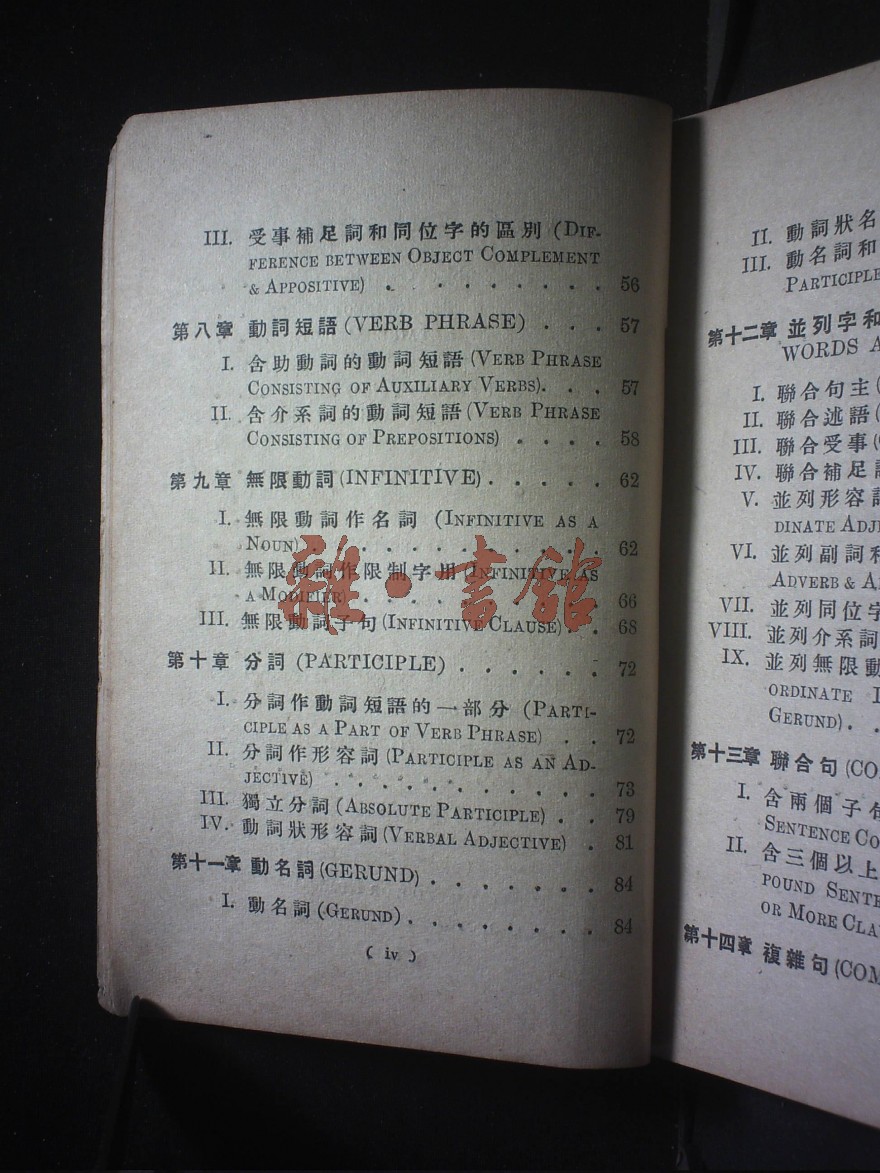 III. 受事補足詞和同位字的區別 (DIF-
FERENCE BETWEEN OBJECT COMPLEMENT
& APPOSITIVE) . . . . . . . . 56
第八章 動詞短語 (VERB PHRASE) . . . 57
I. 含助動詞的動詞短語 (VERB PHRASE
CONSISTING OF AUXILIARY VERBS). . . 57
II. 含介系詞的動詞短語 (VERB PHRASE
CONSISTING OF PREPOSITIONS) . . . . 58
第九章 無限動詞 (INFINITIVE) . . . . . 62
I. 無限動詞作名詞 (INFINITIVE AS A
NOUN) . . . . . . . . . . . 62
II. 無限動詞作限制字用 (INFINITIVE AS
A MODIFIER) . . . . . . . . . 66
III. 無限動詞子句 (INFINITIVE CLAUSE) . . 68
第十章 分詞 (PARTICIPLE) . . . . . . 72
I. 分詞作動詞短語的一部分 (PARTI-
CIPLE AS A PART OF VERB PHRASE) . . 72
II. 分詞作形容詞 (PARTICIPLE AS AN AD-
JECTIVE) . . . . . . . . . . 73
III. 獨立分詞 (ABSOLUTE PARTICIPLE) . . 79
IV. 動詞狀形容詞 (VERBAL ADJECTIVE) . 81
第十一章 動名詞 (GERUND) . . . . . . 84
I. 動名詞 (GERUND) . . . . . . . 84
( iv )
雜·書館
II. 動詞狀名
III. 動名詞和
PARTICIPLE
第十二章 並列字和
WORDS A
I. 聯合句主 (
II. 聯合述語 (
III. 聯合受事 (
IV. 聯合補足
V. 並列形容
DINATE ADJE
VI. 並列副詞和
ADVERB & A
VII. 並列同位字
VIII. 並列介系詞
IX. 並列無限動
ORDINATE I
GERUND) . .
第十三章 聯合句 (CO
I. 含兩個子句
SENTENCE CO
II. 含三個以上
POUND SENTE
OR MORE CLA
第十四章 複雜句 (COM